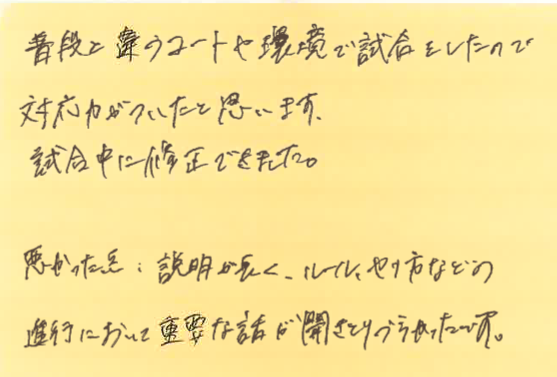 普段と違うコートや環境で試合をしたので
対応力がついたと思います。
試合中に修正できました。
悪かった点：説明が長く、ルール、やり方などの
進行において重要な話が聞きとりづらかったです。